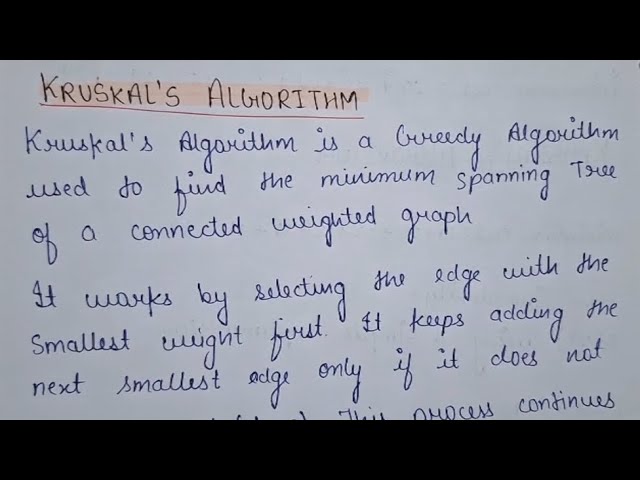 KRUSKAL'S ALGORITHM
Kruskal's Algorithm is a Greedy Algorithm
used to find the minimum spanning Tree
of a connected weighted graph
It works by selecting the edge with the
smallest weight first. It keeps adding the
next smallest edge only if it does not
This process continues